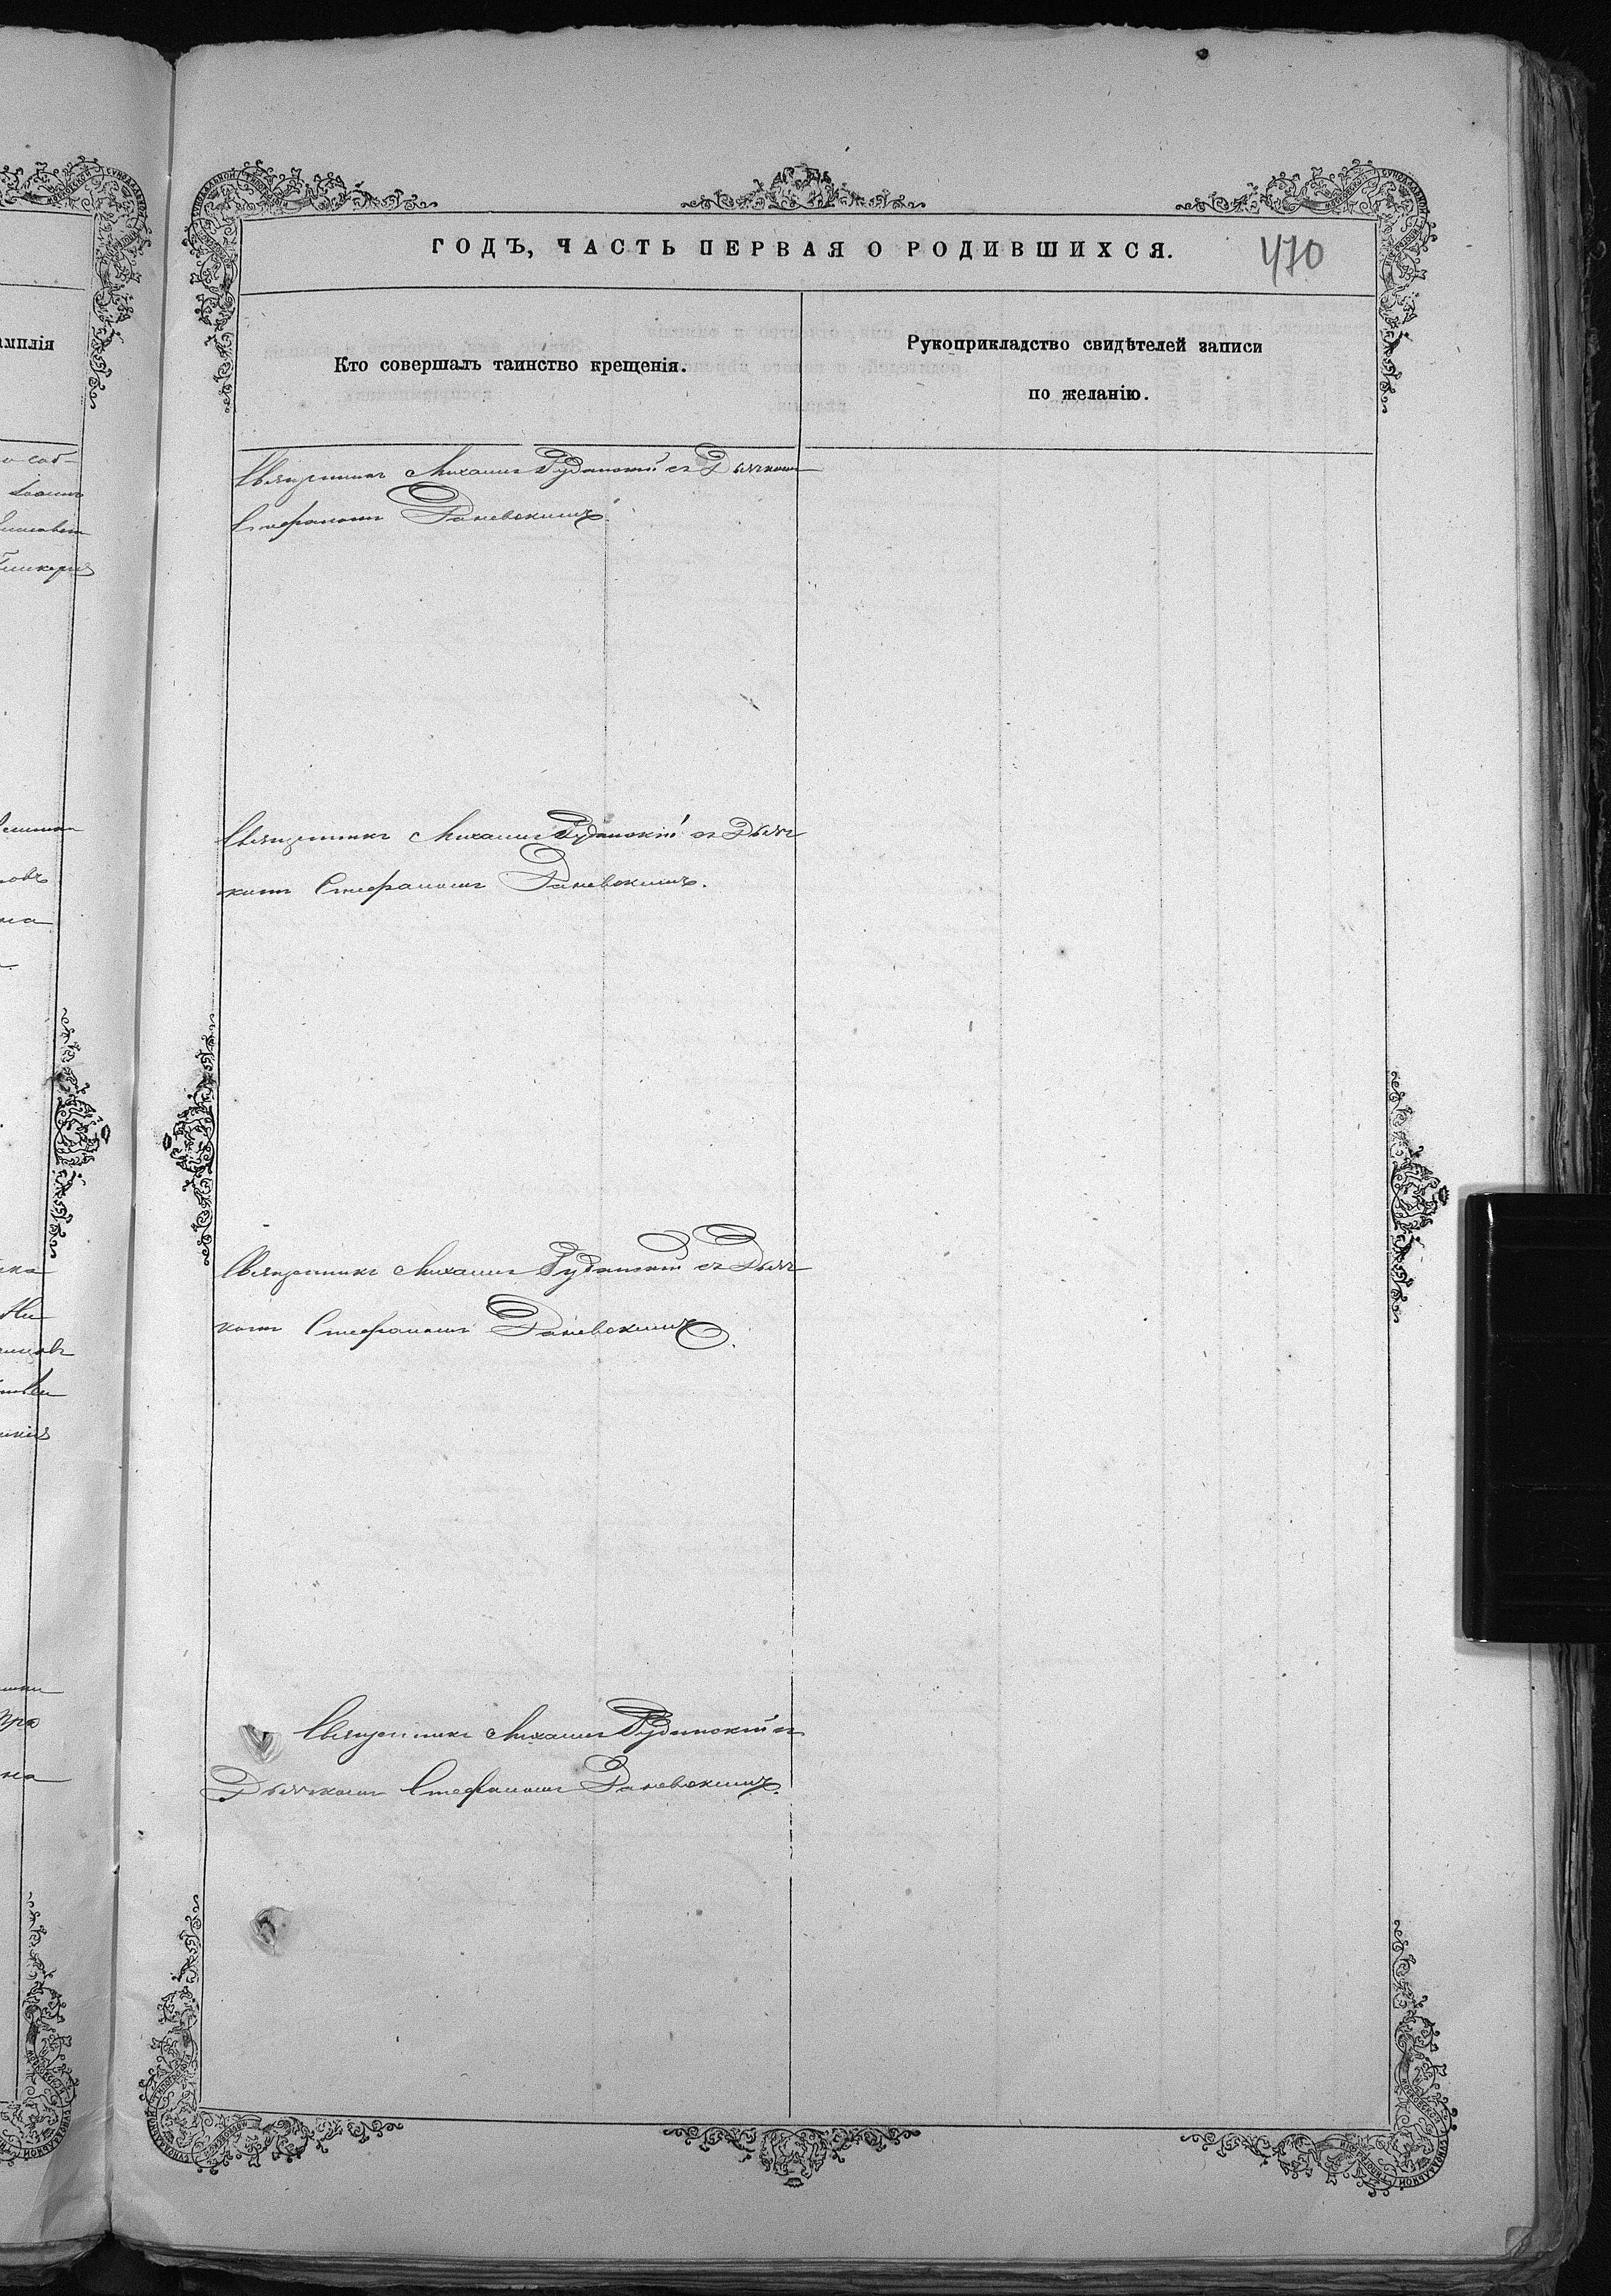 ГОДЪ, ЧАСТЬ ПЕРВАЯ О РОДИВШИХСЯ.
470
Кто совершалъ таинство крещенія.
Рукоприкладство свидѣтелей записи
по желанію.
Священникъ Михаилъ Рудинскій съ Дьячкомъ
Стефаномъ Раневскимъ.
Священникъ Михаилъ Рудинскій съ Дьяч
комъ Стефаномъ Раневскимъ.
Священникъ Михаилъ Рудинскій съ Дьяч
комъ Стефаномъ Раневскимъ.
Священникъ Михаилъ Рудинскій съ
Дьячкомъ Стефаномъ Раневскимъ.